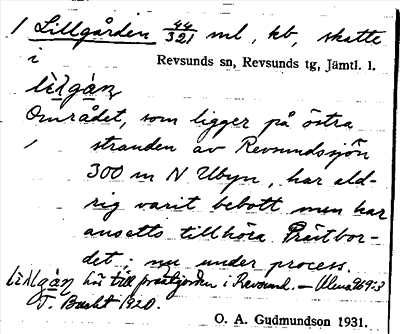 1 Lillgården 44/321 ml, kb, skatte
i Revsunds sn, Revsunds tg, Jämtl. l.
lìlgàn
Området, som ligger på östra
stranden av Revsundssjön
300 m N Ubyn, har ald-
rig varit bebott men har
ansetts tillhöra Prästbor-
det; nu under process.
lìlgàn hör till prästgården i Revsund. –
T. Bucht 1920.
O. A. Gudmundson 1931.